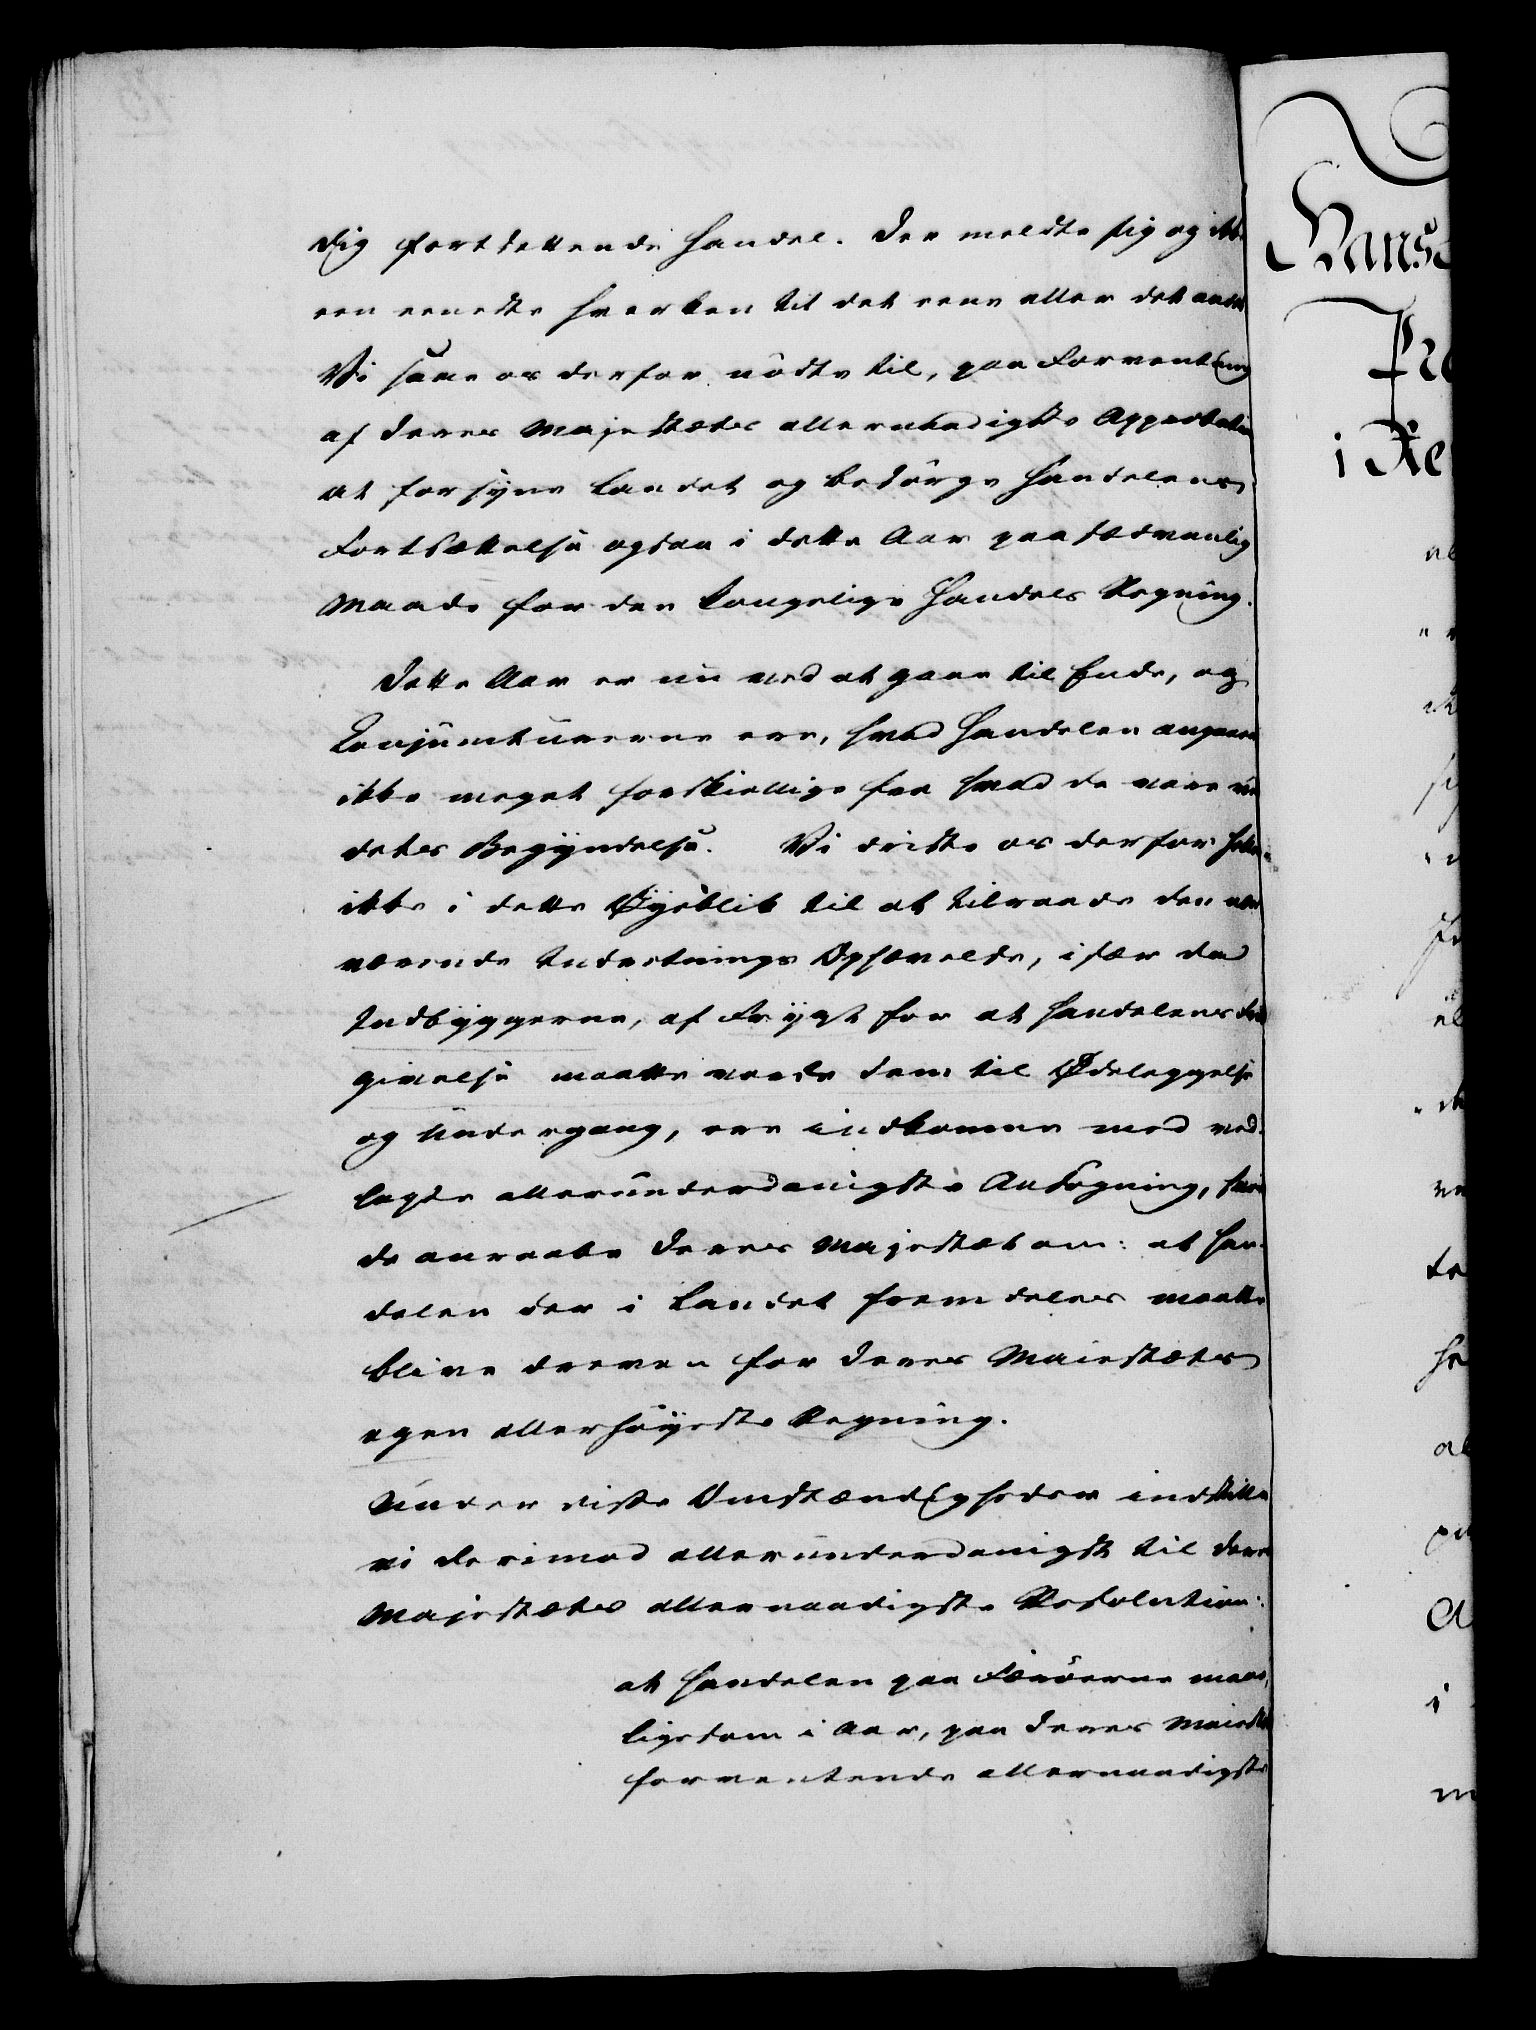 dig fortsettende Handel. Der meldte sig og ikke
een eeneste hverken til det eene eller det andet
Vi saae os derfor nödte til, paa Forventning
af Deres Majestætes allernaadigste Approbation
at forsÿne Landet og besörge Handelens
Fortsættelse ogsaa i dette Aar paa sædvanlig
Maade for den kongelige Handels Regning.
Dette Aar er nu ved at gaae til Ende, og
Conjuncturerne ere, hvad Handelen angaaer
ikke meget forskiellige fra hvad de vare ved
dets Begÿndelse. Vi driste os derfor heller
ikke i dette Øÿeblik til at tilraade den nær
værende Indretnings Ophævelse, især da
Indbÿggerne, af Frÿgt for at Handelens Fri
givelse maatte vorde dem til Ødeleggelse
og Undergang, ere indkomne med ved
lagte allerunderdanigste Ansögning, hvori
de anraabe Deres Majestæt om: at Han
delen der i Landet fremdeles maatte
blive dreven for Deres Maiestætes
egen allerhöÿeste Regning.
Under disse Omstændigheder indstille
vi derimod allerunderdanigst til Deres
Majestætes allernaadigste Resolution:
at Handelen paa Færöerne maae,
ligesom i Aar, paa Deres Maiestæts
forventende allernaadigste
Hans
i Re